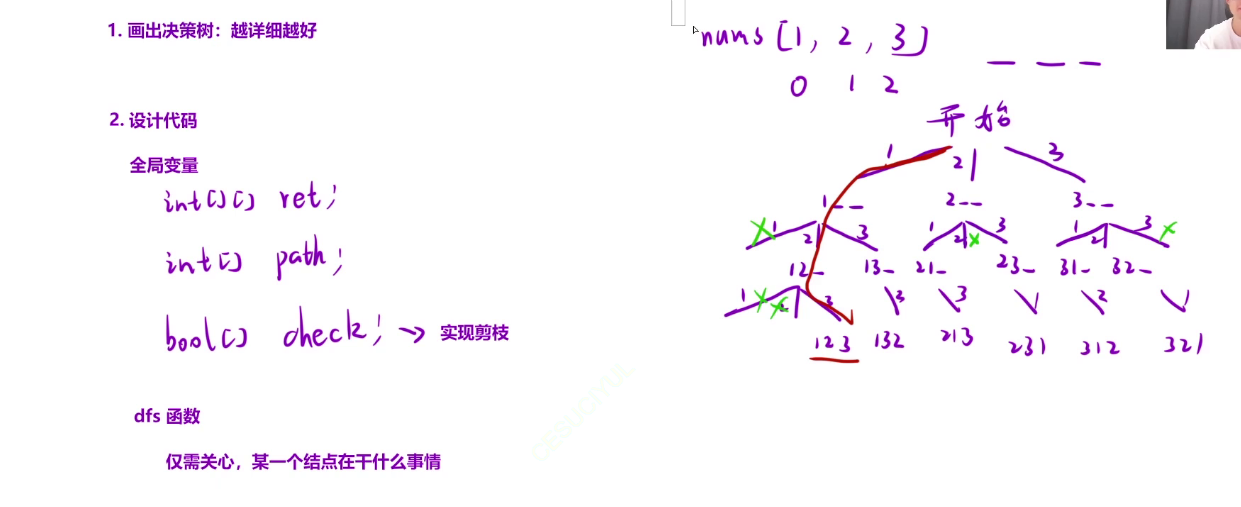 1. 画出决策树：越详细越好
2. 设计代码
全局变量
int[][] ret;
int[] path;
bool[] check; → 实现剪枝
dfs 函数
仅需关心，某一个结点在干什么事情
nums [1, 2, 3]
0 1 2
_ _ _
开始
1 2 3
1__ 2__ 3__
1 2 3 1 2 3 1 2 3
12_ 13_ 21_ 23_ 31_ 32_
1 3 2 3 1 2 1
123 132 213 231 312 321